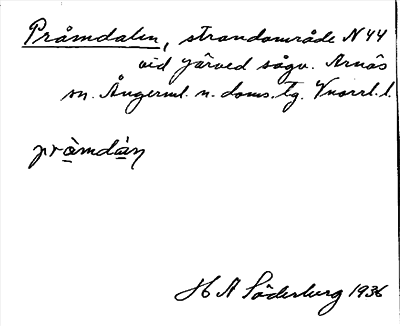 Pråmdalen, strandområde N 44
vid Järved sågv. Arnäs
sn. Ångerml. n. doms. tg. Vnorrl. l.
pràmdàn
H A Söderberg 1936